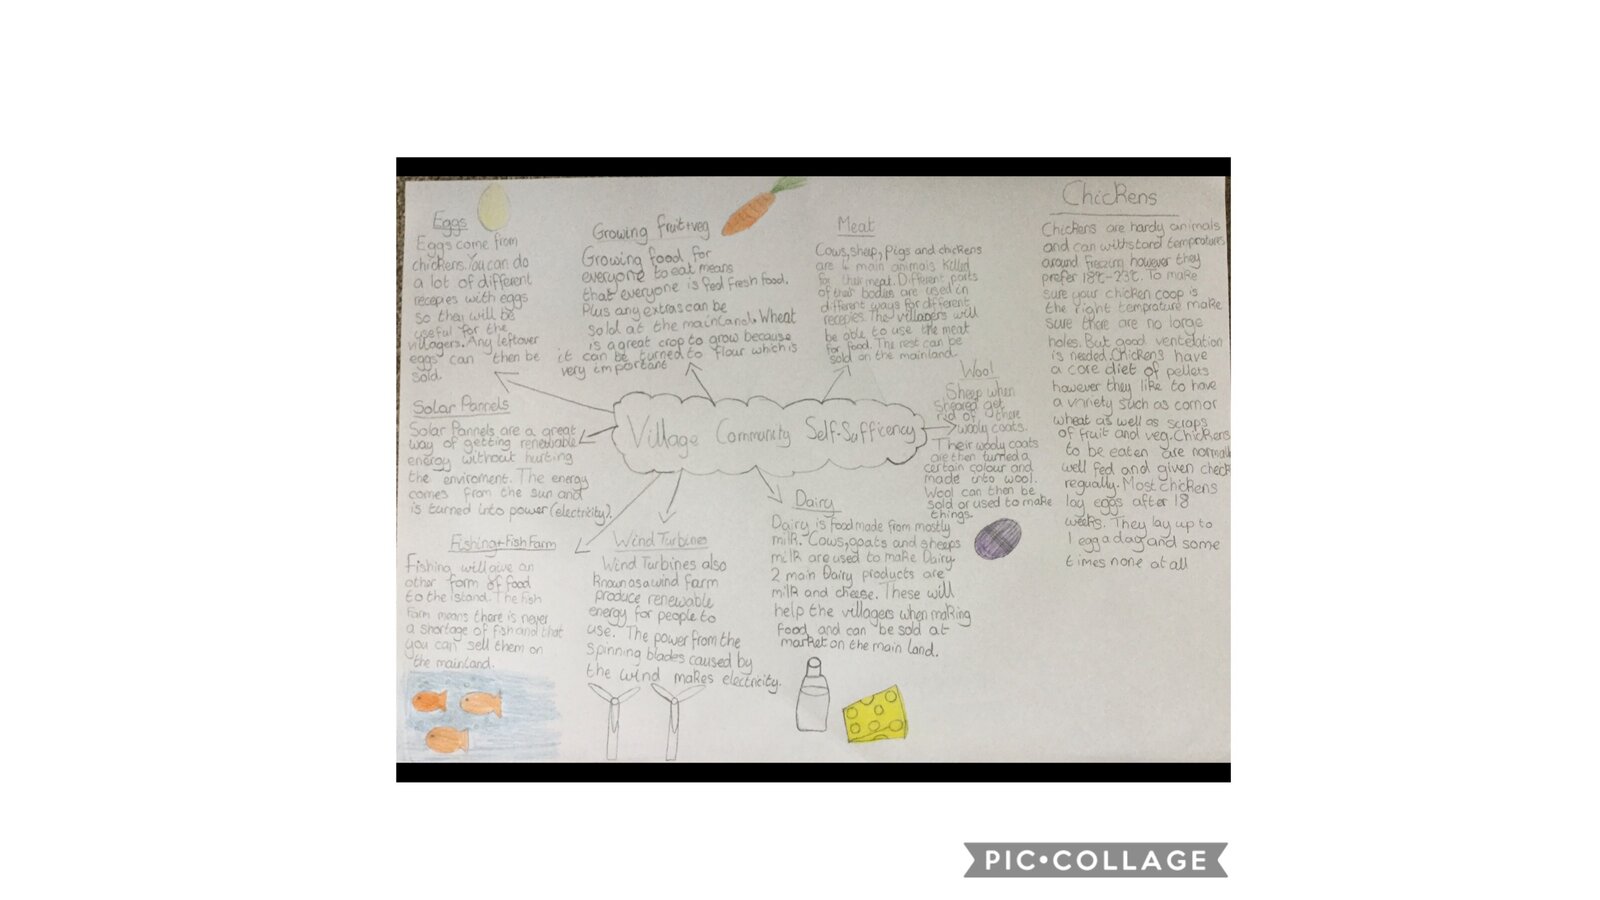 Eggs
Eggs come from
chickens. You can do
a lot of different
recepies with eggs
so they will be
useful for the
villagers. Any leftover
eggs can then be
sold.
Growing fruit+veg
Growing food for
everyone to eat means
that everyone is fed fresh food.
Plus any extras can be
sold at the mainland. Wheat
is a great crop to grow because
it can be turned to flour which is
very important
Meat
Cows, sheep, Pigs and chickens
are 4 main animals killed
for their meat. Different parts
of their bodies are used in
different ways for different
recepies. The villagers will
be able to use the meat
for food. The rest can be
sold on the mainland.
Chickens
Chickens are hardy animals
and can withstand tempratures
around freezing however they
prefer 18°c-23°c. To make
sure your chicken coop is
the right temprature make
sure there are no large
holes. But good ventelation
is needed. Chickens have
a core diet of pellets
however they like to have
a variety such as corn or
wheat as well as scraps
of fruit and veg. Chickens
to be eaten are normall
well fed and given check
regually. Most chickens
lay eggs after 18
weeks. They lay up to
1 egg a day and some
times none at all
Wool
Sheep when
sheared get
rid of there
wooly coats.
Their wooly coats
are then turned a
certain colour and
made into wool.
Wool can then be
sold or used to make
things.
Village Community Self-Sufficency
Solar Pannels
Solar Pannels are a great
way of getting renewable
energy without hurting
the enviroment. The energy
comes from the sun and
is turned into power (electricity).
Fishing+Fish Farm
Fishing will give an
other form of food
to the Island. The fish
farm means there is never
a shortage of fish and that
you can sell them on
the mainland.
Wind Turbines
Wind Turbines also
known as a wind farm
produce renewable
energy for people to
use. The power from the
spinning blades caused by
the wind makes electricity.
Dairy
Dairy is food made from mostly
milk. Cows, goats and sheeps
milk are used to make Dairy.
2 main Dairy products are
milk and cheese. These will
help the villagers when making
food and can be sold at
market on the main land.
PIC•COLLAGE